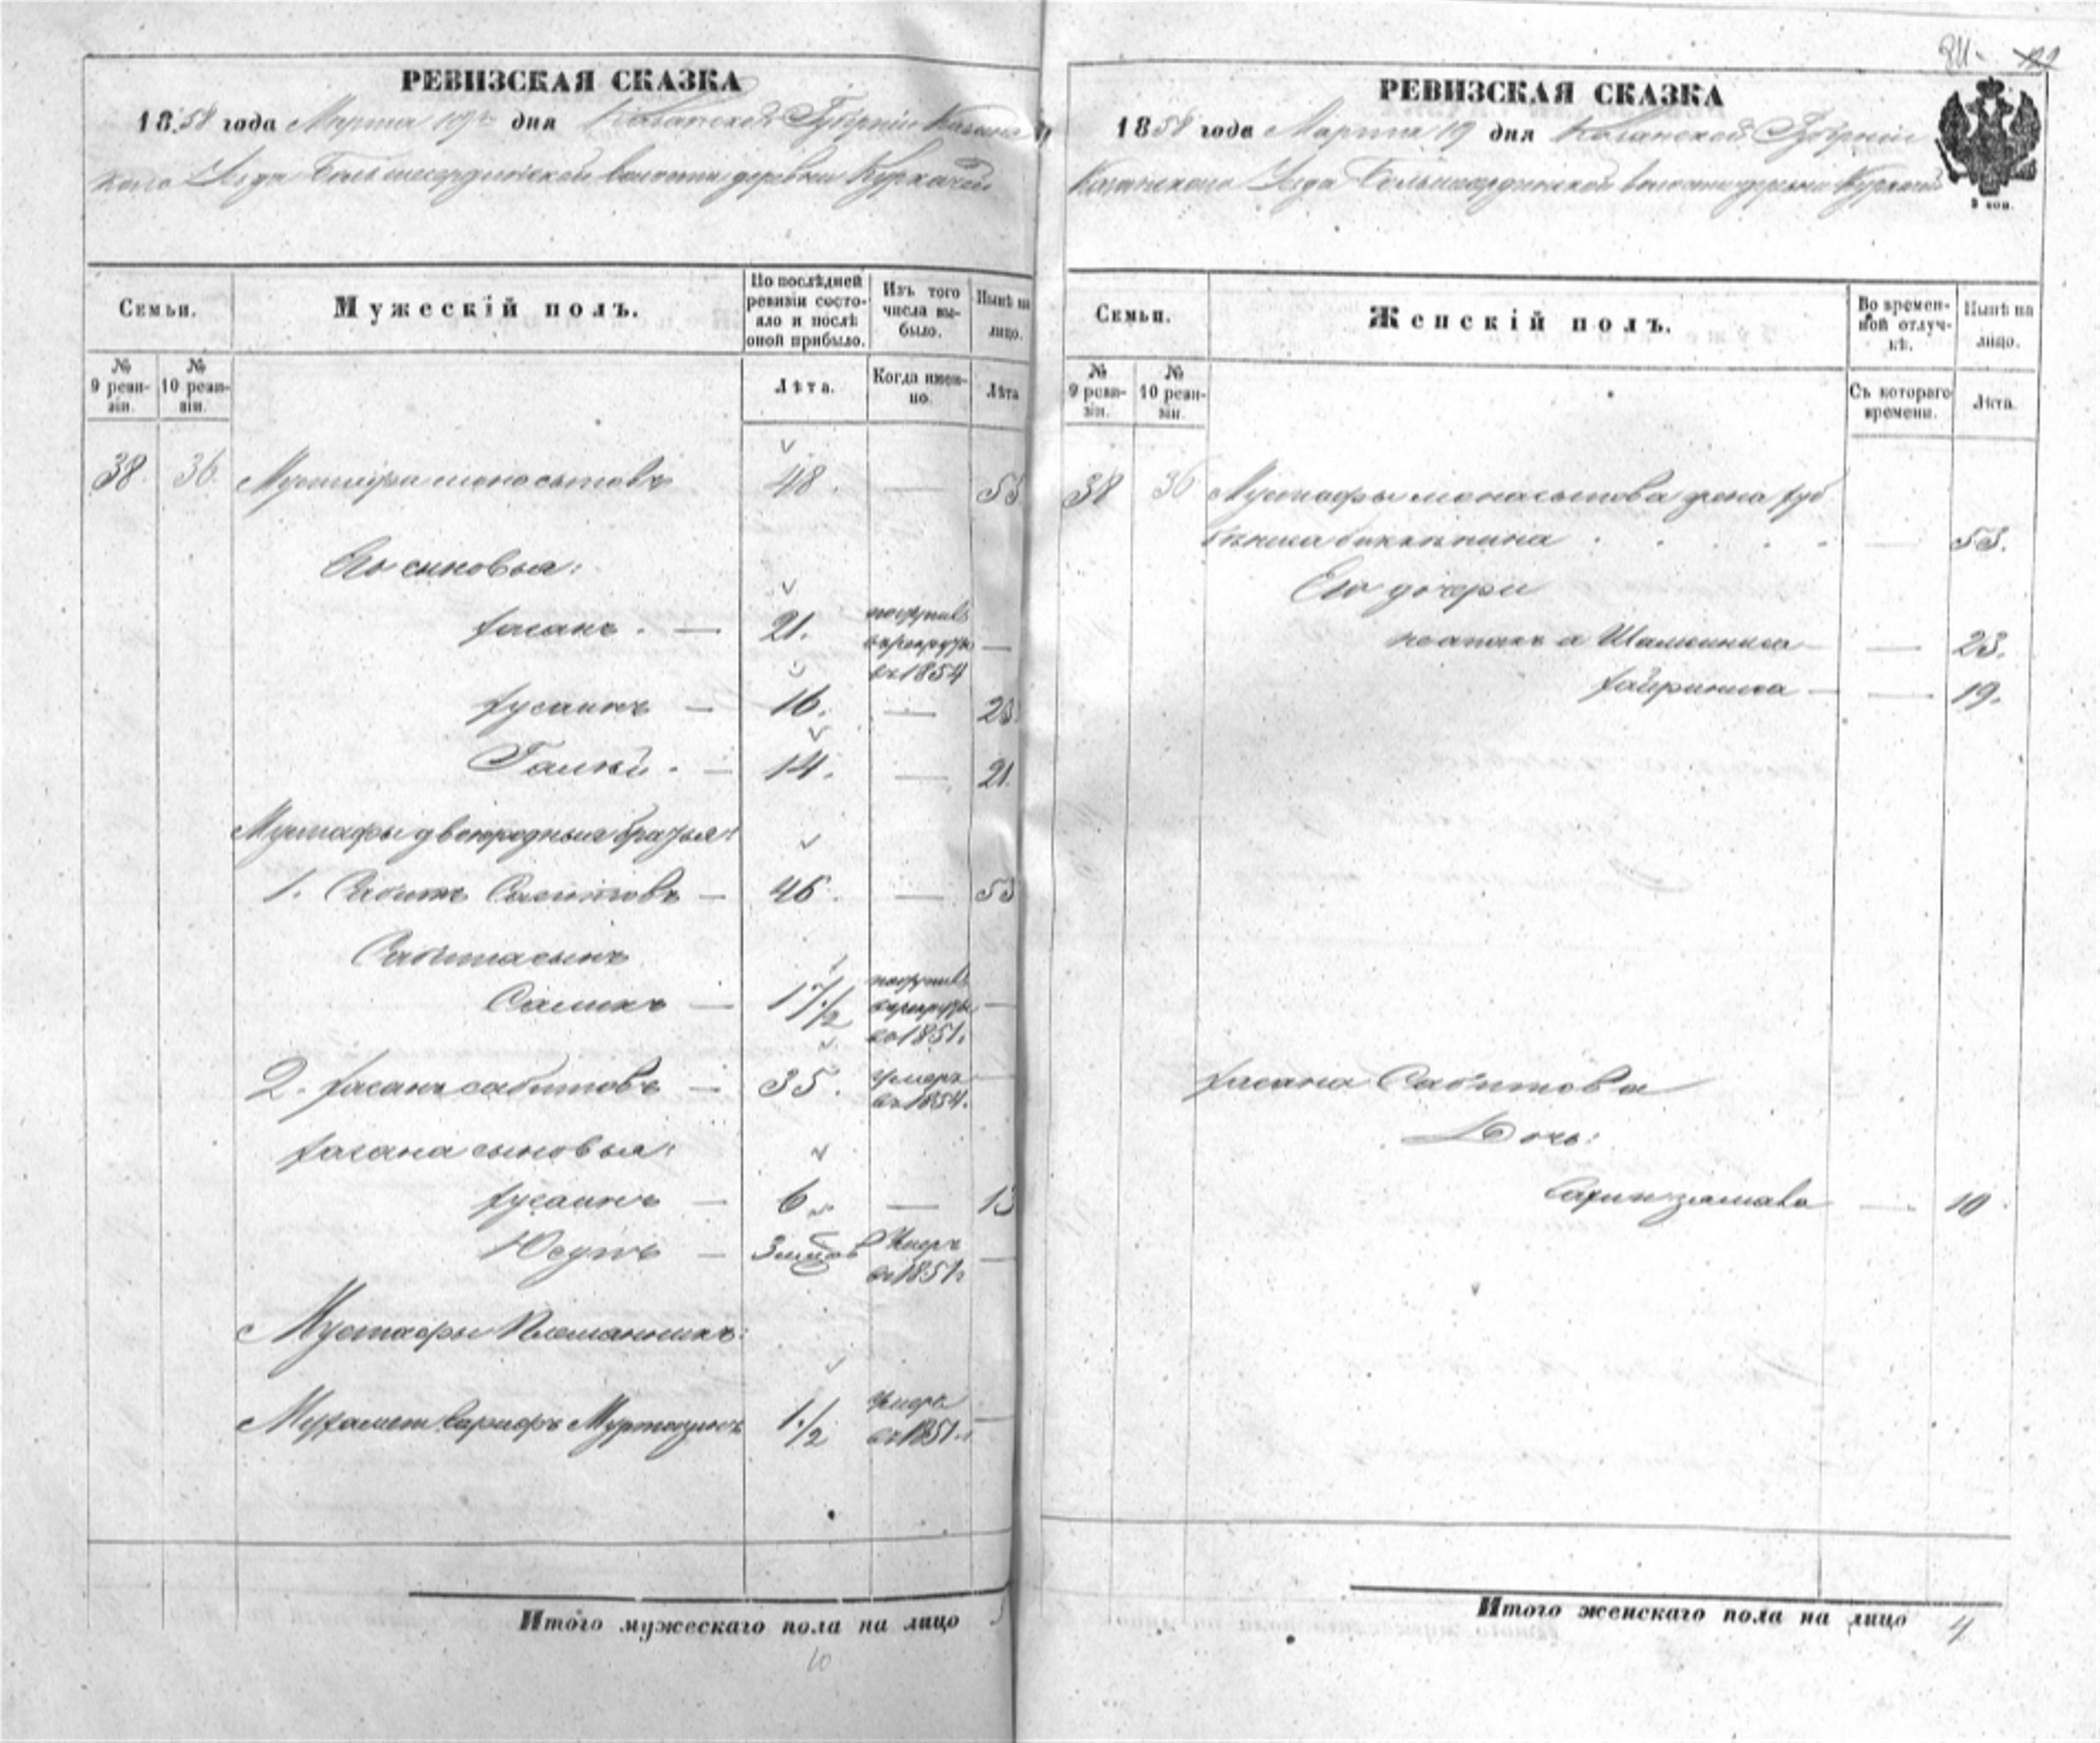 РЕВИЗСКАЯ СКАЗКА
1858 года Марта 19 дня Казанской Губернiи Казанс
каго Уезда Большеардинской волости деревни Куркачей
Семьи.
Мужескiй полъ.
По послѣдней ревизiи состояло и послѣ оной прибыло.
Изъ того числа выбыло.
Нынѣ на лицо.
№ 9 ревизiи.
№ 10 ревизiи.
Лѣта.
Когда именно.
Лѣта
38. 36. Мустафа монасыповъ 48. — 55
Его сыновья:
Хасанъ. — 21. поступилъ в рекруты въ 1854 —
Хусаинъ — 16. — 23
Галѣй. — 14. — 21.
Мустафы двоюродныя братья:
1. Сабитъ Саситовъ — 46. — 53
Сабита сынъ
Салихъ — 17 1/2 поступилъ в рекруты въ 1851. —
2. Хасанъ сабитовъ — 35. умеръ въ 1854. —
Хасана сыновья:
Хусаинъ — 6 — 13
Юсупъ — 3 Умеръ въ 1851г —
Мустафы Племянникъ:
Мухамет Муртазинъ 1/2 умеръ въ 1851г —
Итого мужескаго пола на лицо 5
10
84.
РЕВИЗСКАЯ СКАЗКА
1858 года Марта 19 дня Казанской Губернiи
Казанскаго Уезда Большеардинской волости деревни Куркачей
3 коп.
Семьи.
Женскiй полъ.
Во временной отлучкѣ.
Нынѣ на лицо.
№ 9 ревизiи.
№ 10 ревизiи.
Съ котораго времени.
Лѣта.
38 36 Мустафы монасыпова жена
— 53.
Его дочери
Шамсиниса — — 23.
Хайриниса — — 19.
Хасана Сабитова
Дочь:
— 10
Итого женскаго пола на лицо 4